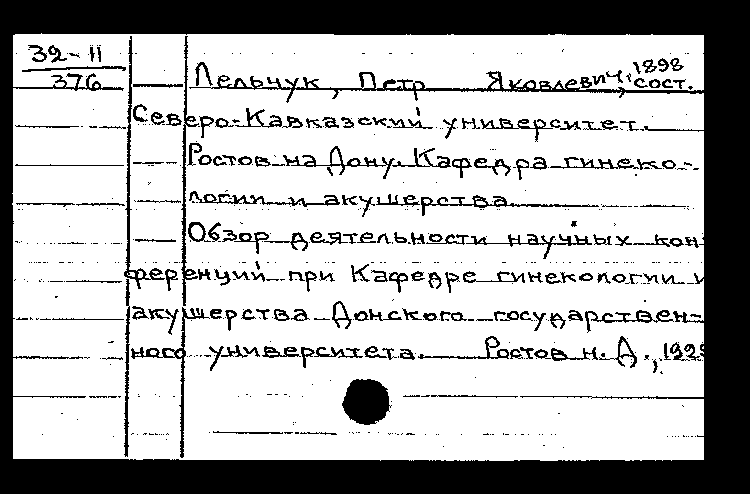 32-11
376
Лельчук, Петр Яковлевич, 1898, сост.
Северо-Кавказский университет.
Ростов на Дону. Кафедра гинеко-
логии и акушерства
Обзор деятельности научных кон-
ференций при Кафедре гинекологии и
акушерства Донского государствен-
ного университета. Ростов н. Д.,